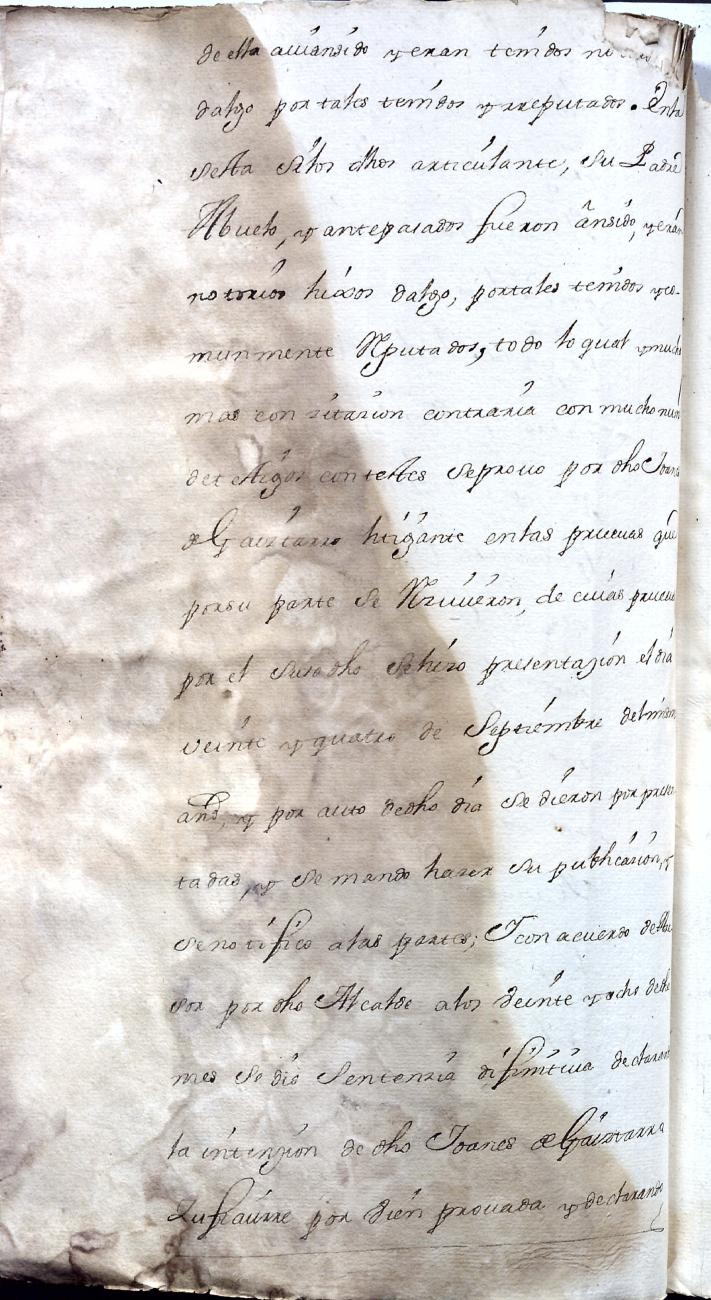 de ella auian sido y eran tenidos no
dalgo por tales tenidos y rreputados. Enta
se sta dhos articulante, su Padre
Abuelo, y antepasados fueron ansido, y eran
notorios hixos dalgo, por tales tenidos y co-
munmente Rputados, todo lo qual y mucho
mas con zitazion contraria con mucho num
de testigos contestes se prouo por dho Joan
de Gaiztarro litigante en las prueuas que
por su parte se Rziuieron, de cuias prueua
por el suso dho se hizo presentazion el dia
veinte y quatro de Septiembre del mismo
año, y por auto de dho dia se dieron por presen
tadas, y se mando hazer su publicazion, y
se notifico a las partes; I con acuerdo de Asse
sor por dho Alcalde a los veinte y ocho de dho
mes se dio Sentenzia difinitiua declarand
la intenzion de dho Joanes de Gaiztarro
por bien prouada y declarando